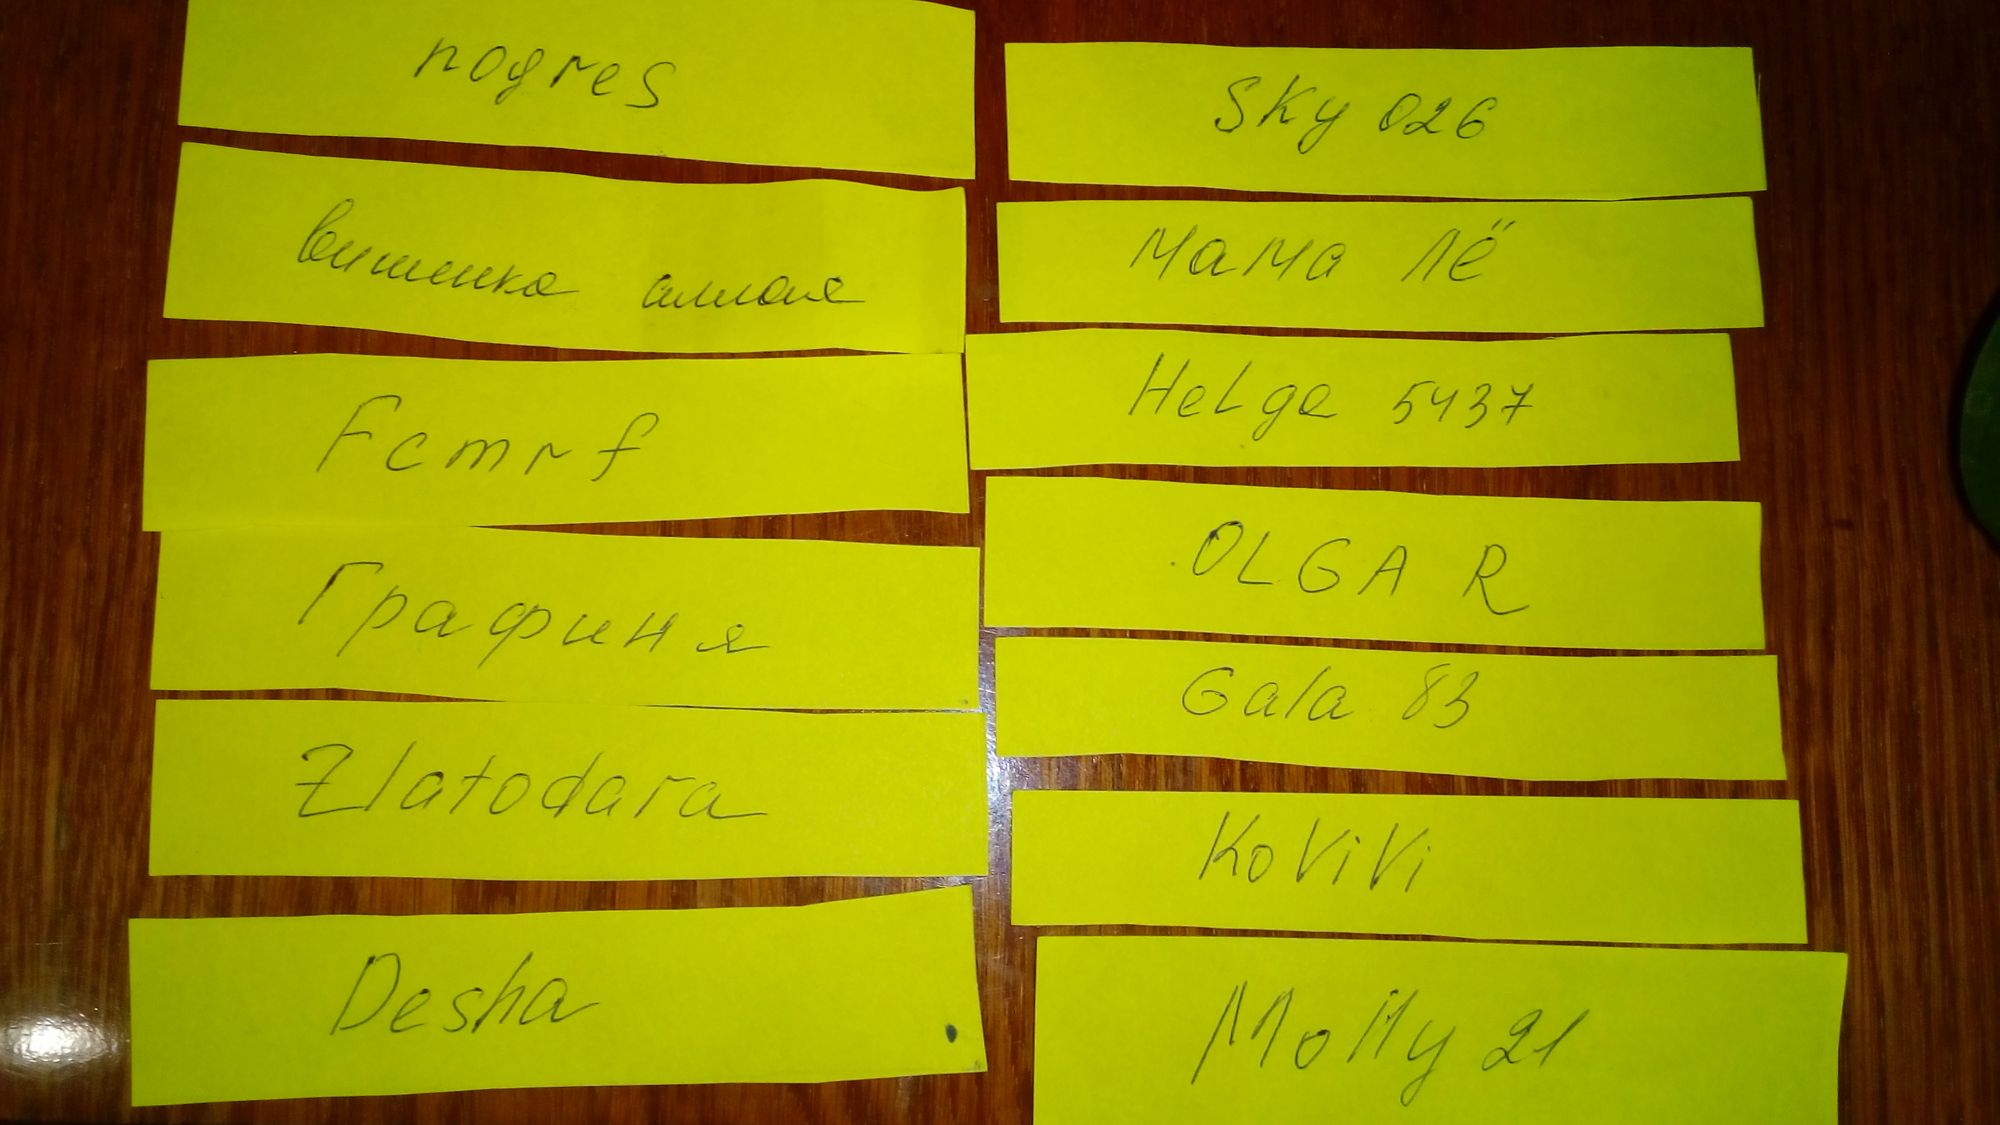 nogres
вишенка алиая
Fcmrf
Графиня
Zlatodara
Desha
SKy 026
мама лё
HeLga 5437
OLGA R
Gala 83
KoViVi
Molly 21